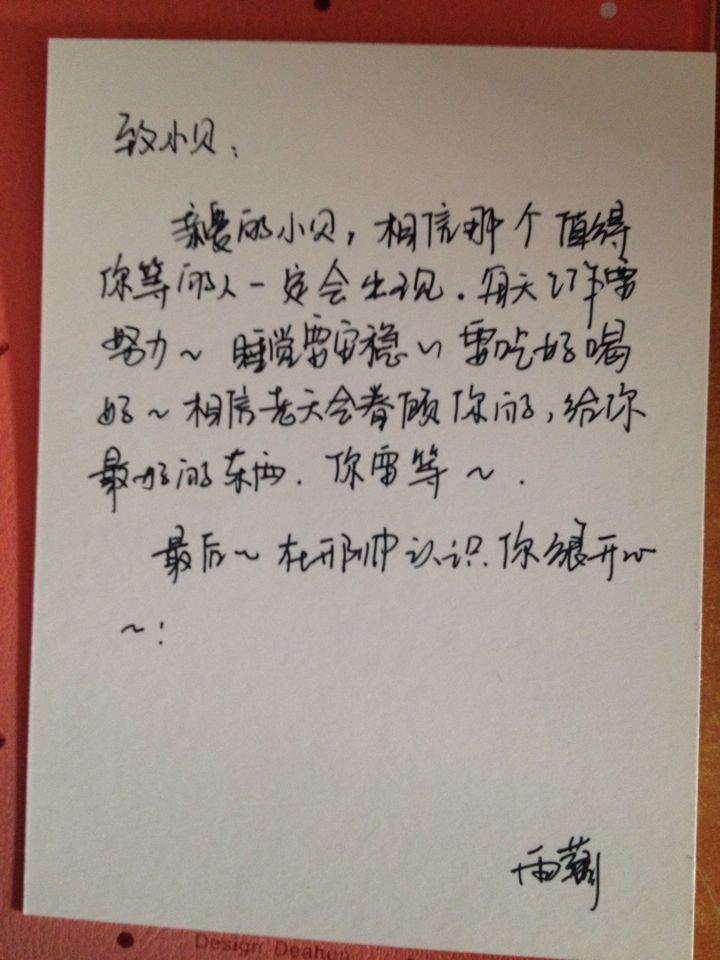 致小贝：
亲爱的小贝，相信那个值得
你等的人一定会出现．每天工作要
努力～睡觉要安稳～要吃好喝
好～相信老天会眷顾你的，给你
最好的东西．你要等～．
最后～在邢帅认识．你很开心
～！
Design